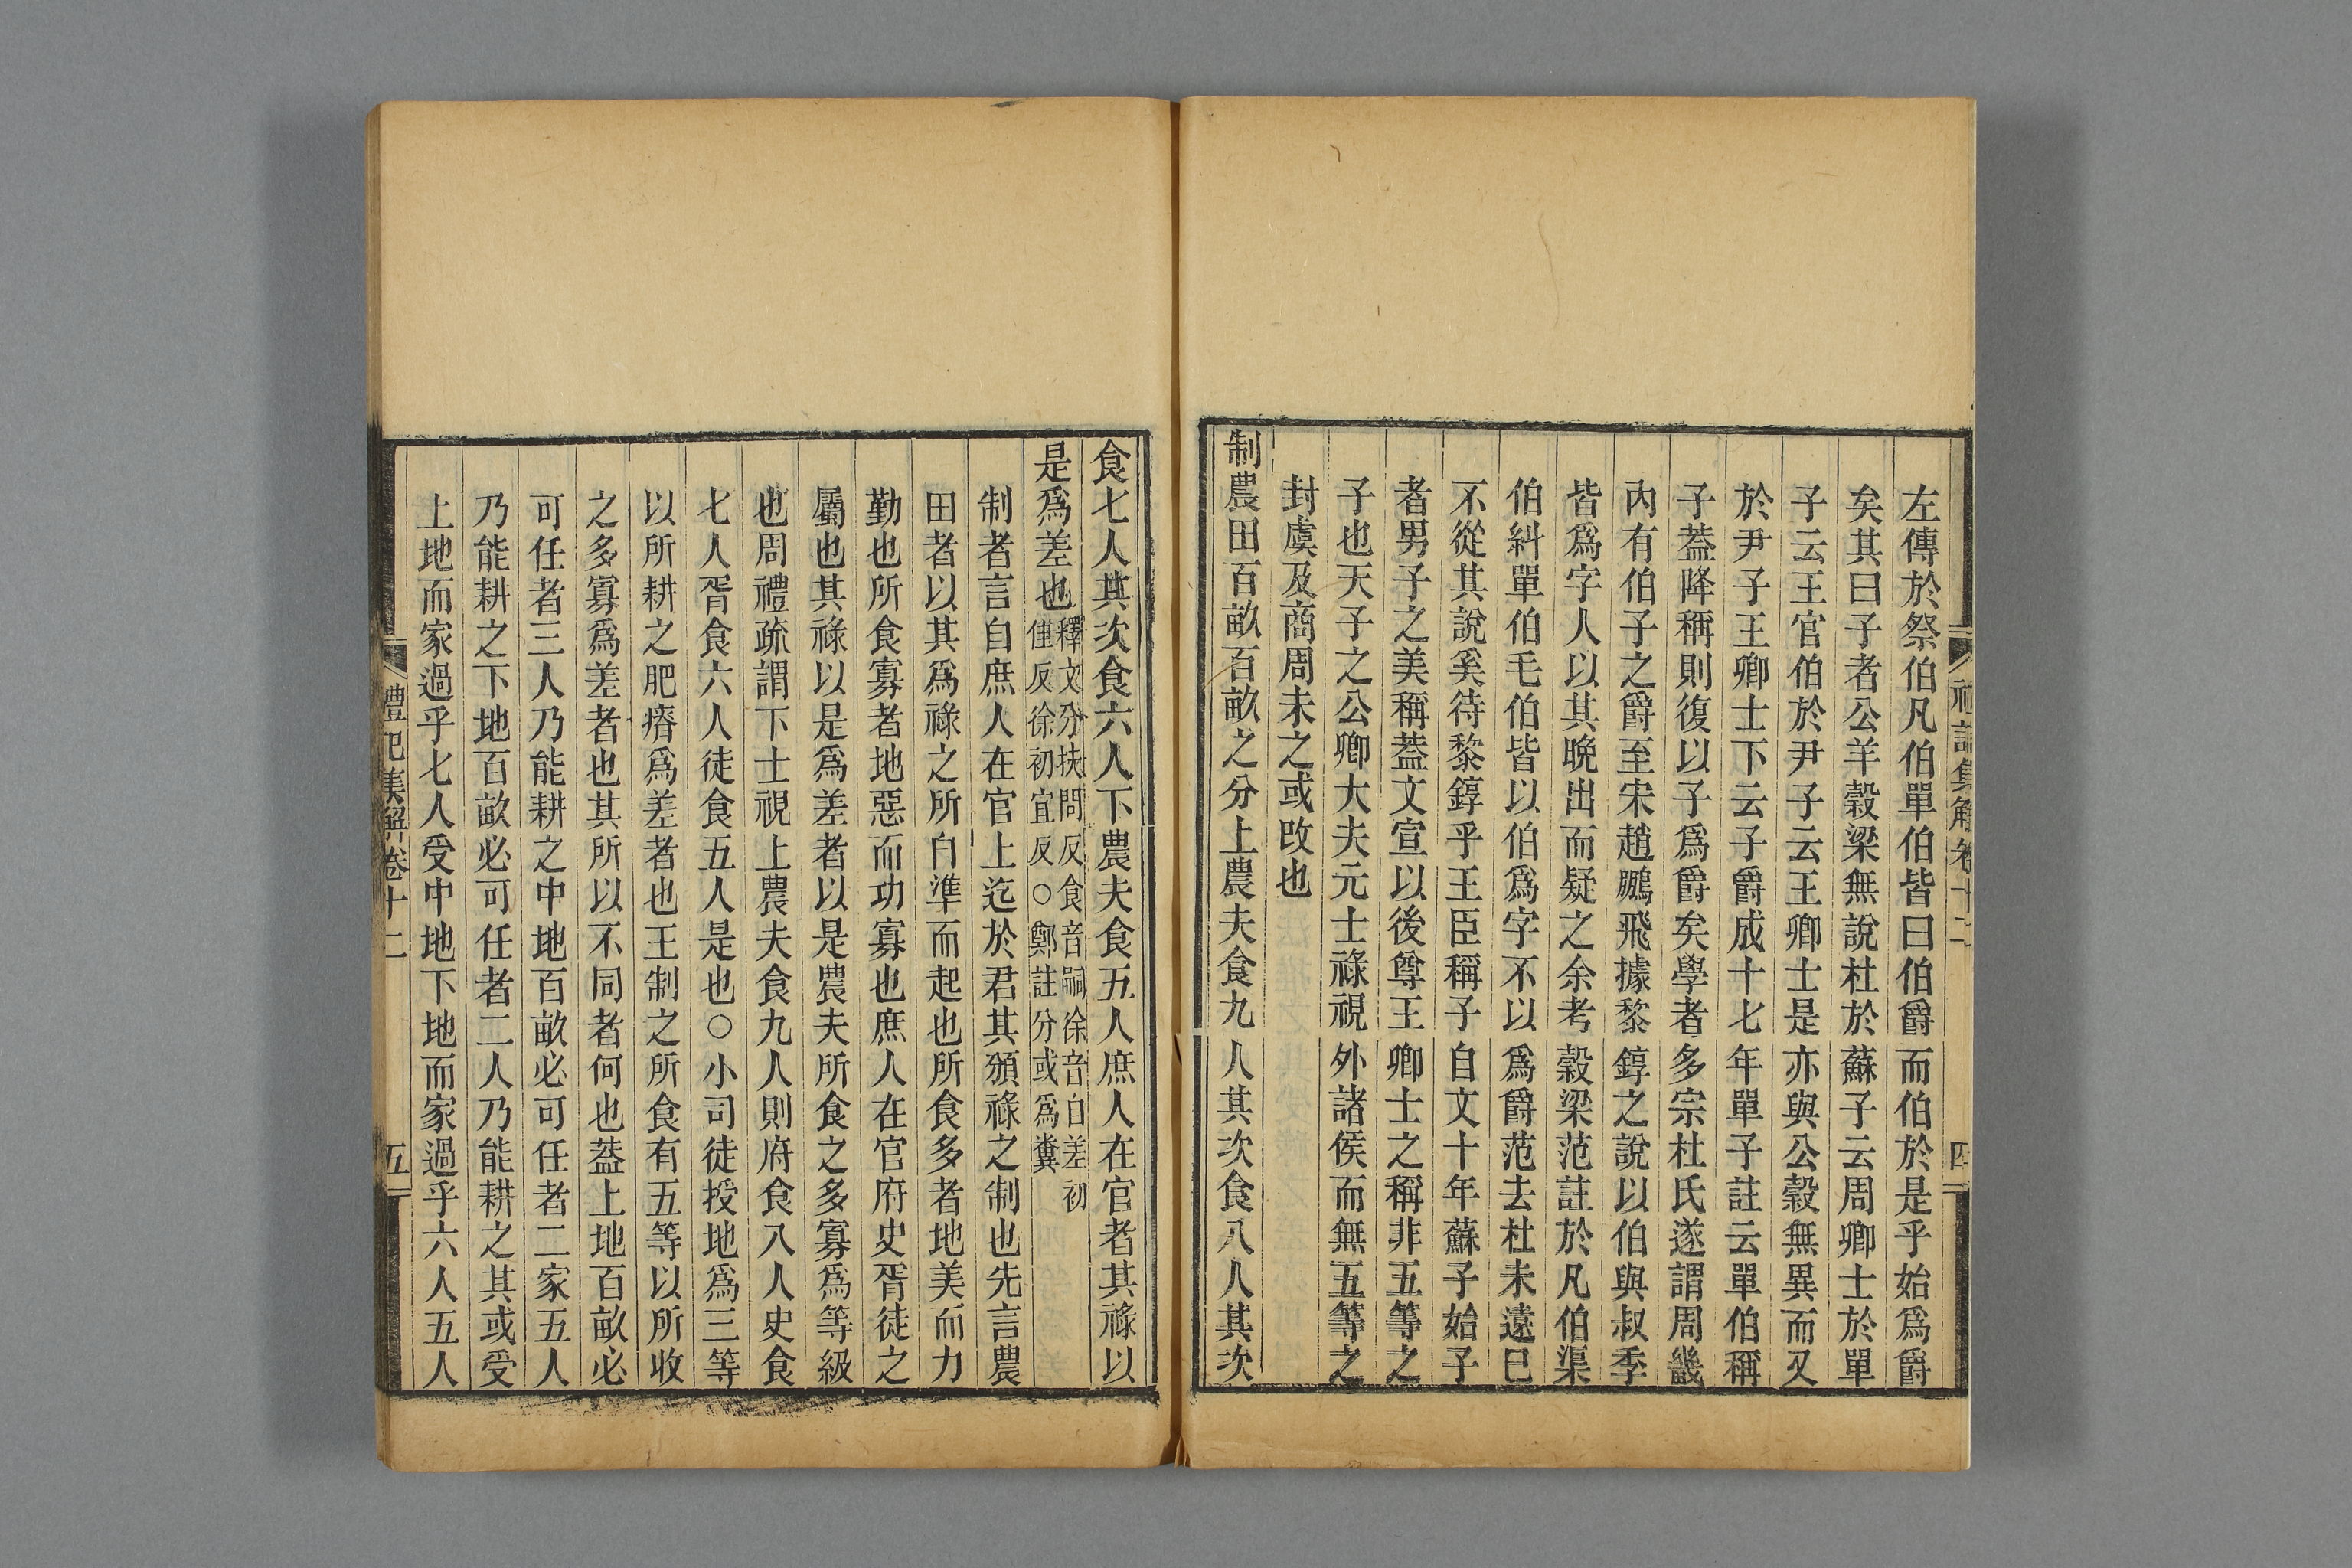 左傳於祭伯凡伯單伯皆曰伯爵而伯於是乎始爲爵
矣其曰子者公羊榖梁無說杜於蘇子云周卿士於單
子云王官伯於尹子云王卿士是亦與公榖無異而又
於尹子王卿士下云子爵成十七年單子註云單伯稱
子葢降稱則復以子爲爵矣學者多宗杜氏遂謂周畿
內有伯子之爵至宋趙鵬飛據黎錞之說以伯與叔季
皆爲字人以其晚出而疑之余考榖梁范註於凡伯渠
伯糾單伯毛伯皆以伯爲字不以爲爵范去杜未遠已
不從其說奚待黎錞乎王臣稱子自文十年蘇子始子
者男子之美稱葢文宣以後尊王卿士之稱非五等之
子也天子之公卿大夫元士祿視外諸侯而無五等之
封虞及商周未之或改也
制農田百畝百畝之分上農夫食九人其次食八人其次
禮記集解卷十二
四
食七人其次食六人下農夫食五人庶人在官者其祿以
是爲差也釋文分扶問反食音嗣徐音自差初
佳反徐初宜反○鄭註分或爲糞
制者言自庶人在官上迄於君其頒祿之制也先言農
田者以其爲祿之所自準而起也所食多者地美而力
勤也所食寡者地惡而功寡也庶人在官府史胥徒之
屬也其祿以是爲差者以是農夫所食之多寡爲等級
也周禮疏謂下士視上農夫食九人則府食八人史食
七人胥食六人徒食五人是也○小司徒授地爲三等
以所耕之肥瘠爲差者也王制之所食有五等以所收
之多寡爲差者也其所以不同者何也葢上地百畝必
可任者三人乃能耕之中地百畝必可任者二家五人
乃能耕之下地百畝必可任者二人乃能耕之其或受
上地而家過乎七人受中地下地而家過乎六人五人
禮記集解卷十二
五